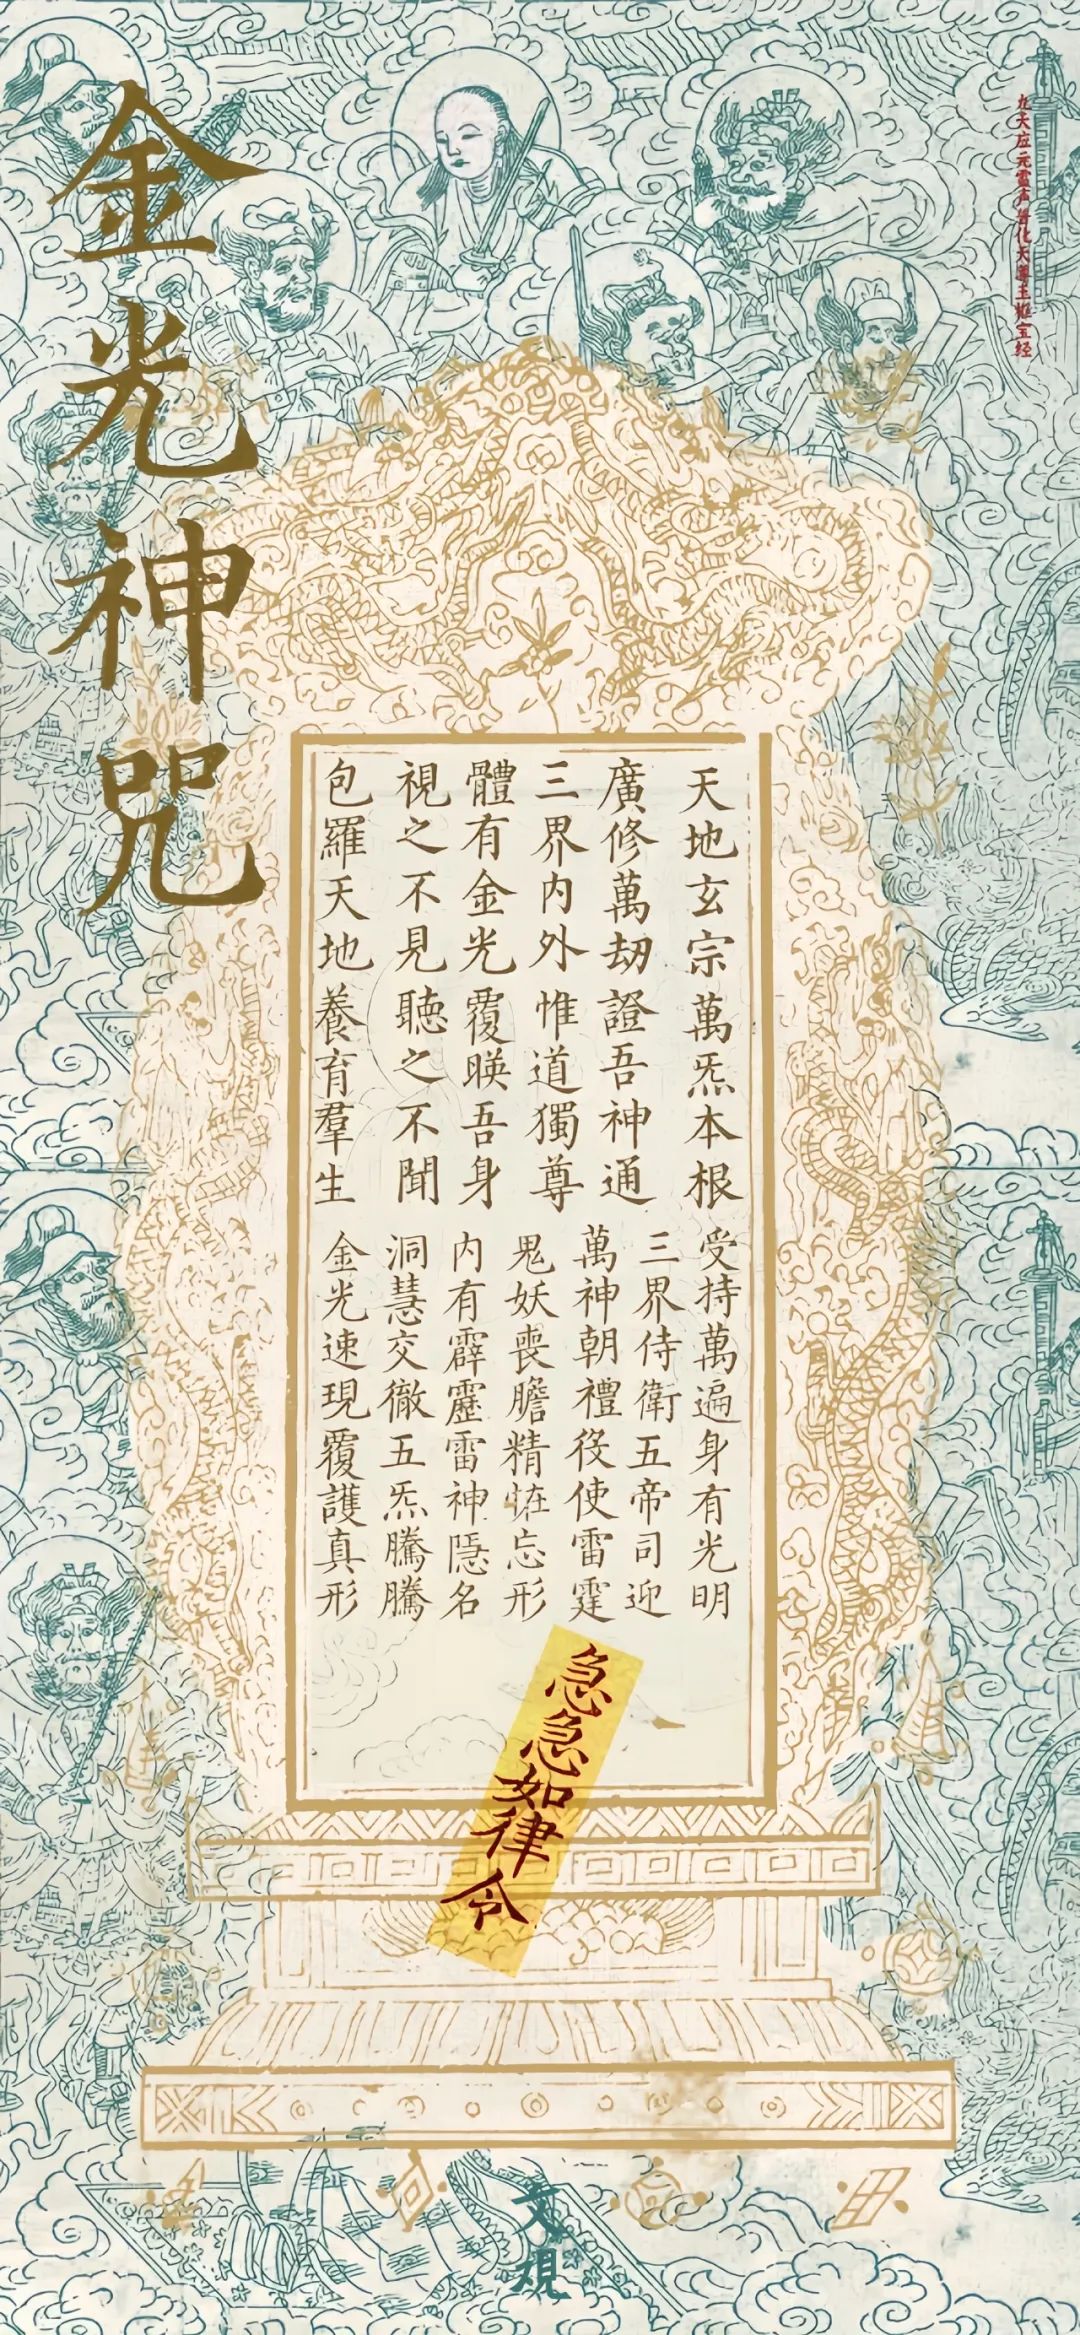 九天应元雷声普化天尊玉枢宝经
金光神咒
天地玄宗萬炁本根
廣修萬劫證吾神通
三界内外惟道獨尊
體有金光覆暎吾身
視之不見聽之不聞
包羅天地養育羣生
受持萬遍身有光明
三界侍衛五帝司迎
萬神朝禮役使雷霆
鬼妖喪膽精恠忘形
内有霹靂雷神隱名
洞慧交徹五炁騰騰
金光速現覆護真形
急急如律令
文